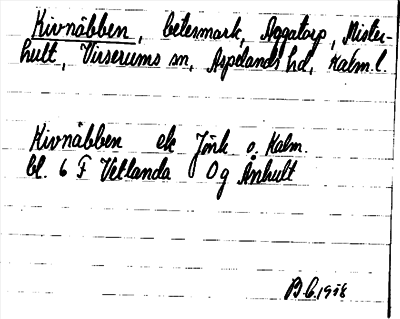 Kivnäbben, betesmark, Aggatorp, Mister-
hult, Virserums sn, Aspelands hd, Kalm. l.
Kivnäbben ek Jönk o. Kalm.
bl. 6 F Vetlanda Og Århult
B 6.1958